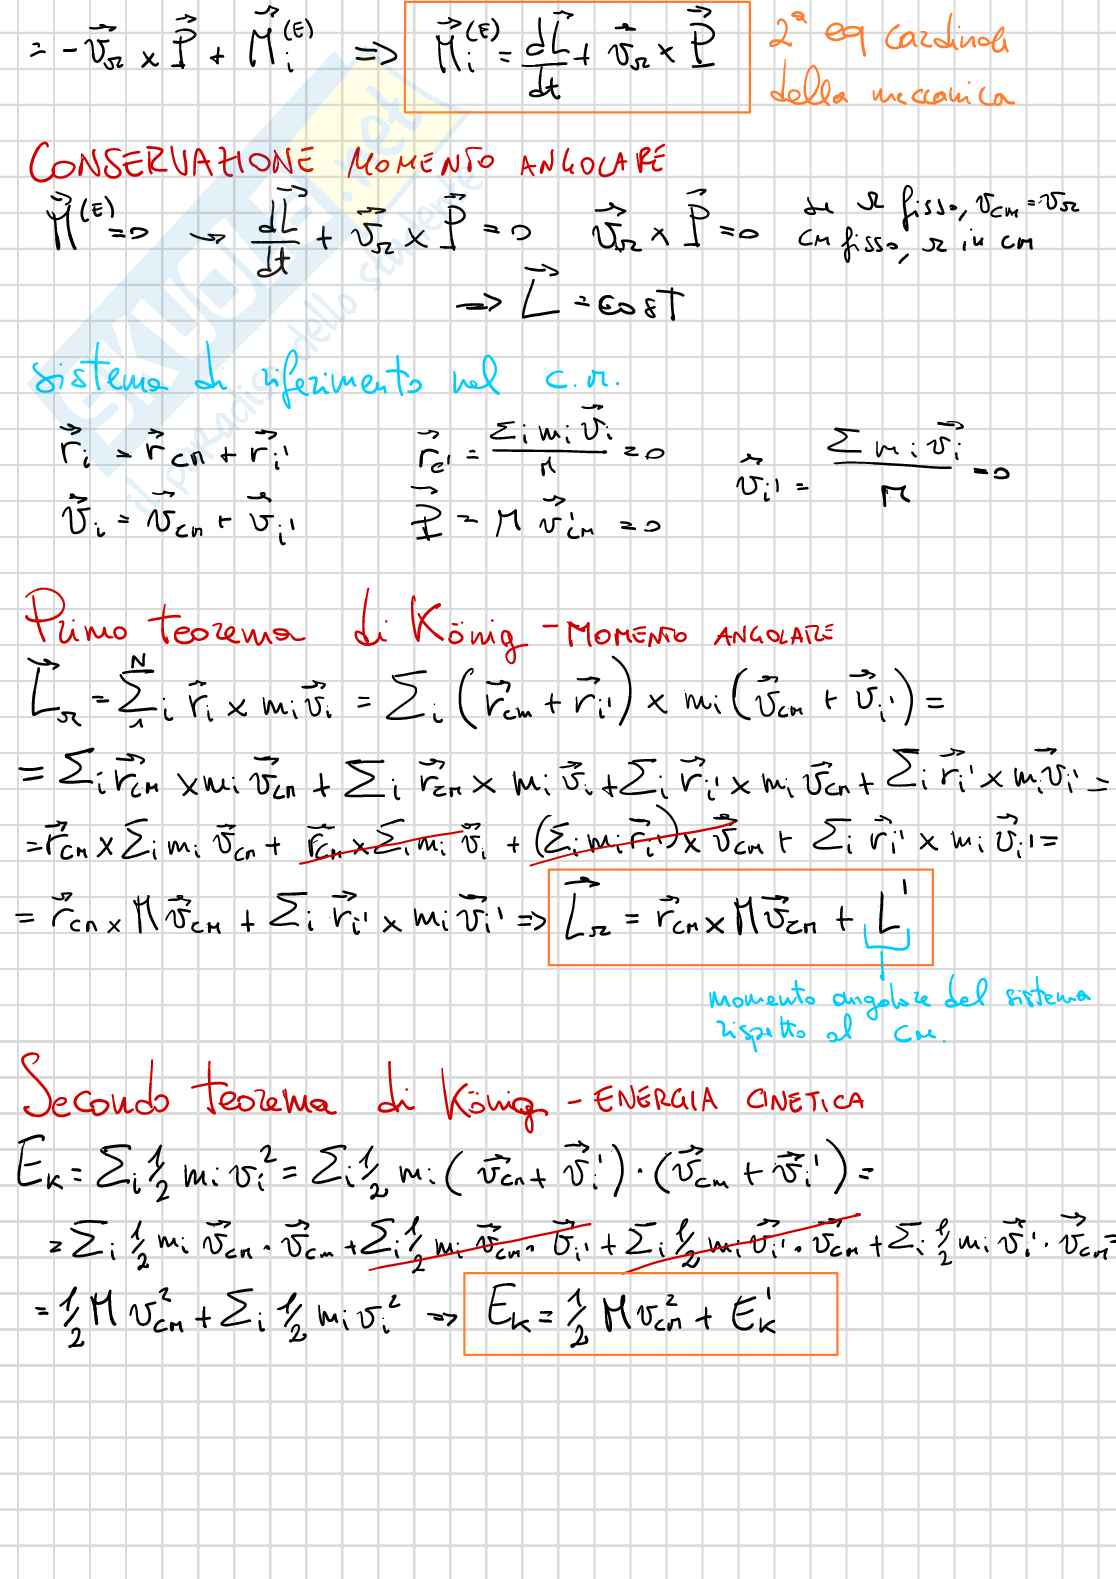 = -v⃗_Ω × P⃗ + M⃗_i^(E) ⟹ M⃗_i^(E) = dL⃗/dt + v⃗_Ω × P⃗ 2ª eq cardinali
della meccanica
CONSERVAZIONE MOMENTO ANGOLARE
M⃗^(E) = 0 → dL⃗/dt + v⃗_Ω × P⃗ = 0 v⃗_Ω × P⃗ = 0 se Ω fisso, v_CM = v_Ω
CM fisso, Ω in CM
⟹ L⃗ = COST
sistema di riferimento nel c.m.
r⃗_i = r⃗_CM + r⃗_i' r⃗_c' = Σ_i m_i v⃗_i / M = 0 v⃗_i' = Σ m_i v⃗_i / M = 0
v⃗_i = v⃗_CM + v⃗_i' P⃗ = M v⃗'_CM = 0
Primo teorema di König - MOMENTO ANGOLARE
L⃗_Ω = Σ_1^N i r⃗_i × m_i v⃗_i = Σ_i (r⃗_cm + r⃗_i') × m_i (v⃗_CM + v⃗_i') =
= Σ_i r⃗_CM × m_i v⃗_CM + Σ_i r⃗_CM × m_i v⃗_i + Σ_i r⃗_i' × m_i v⃗_CM + Σ_i r⃗_i' × m_i v⃗_i' =
= r⃗_CM × Σ_i m_i v⃗_CM + r⃗_CM × Σ_i m_i v⃗_i + (Σ_i m_i r⃗_i') × v⃗_CM + Σ_i r⃗_i' × m_i v⃗_i' =
= r⃗_CM × M v⃗_CM + Σ_i r⃗_i' × m_i v⃗_i' ⟹ L⃗_Ω = r⃗_CM × M v⃗_CM + L'
momento angolare del sistema
rispetto al CM.
Secondo teorema di König - ENERGIA CINETICA
E_K = Σ_i 1/2 m_i v_i² = Σ_i 1/2 m_i (v⃗_CM + v⃗_i') · (v⃗_CM + v⃗_i') =
= Σ_i 1/2 m_i v⃗_CM · v⃗_CM + Σ_i 1/2 m_i v⃗_CM · v⃗_i' + Σ_i 1/2 m_i v⃗_i' · v⃗_CM + Σ_i 1/2 m_i v⃗_i' · v⃗_CM =
= 1/2 M v_CM² + Σ_i 1/2 m_i v_i² → E_K = 1/2 M v_CM² + E_K'
SKUOLA.net
il paradiso dello studente